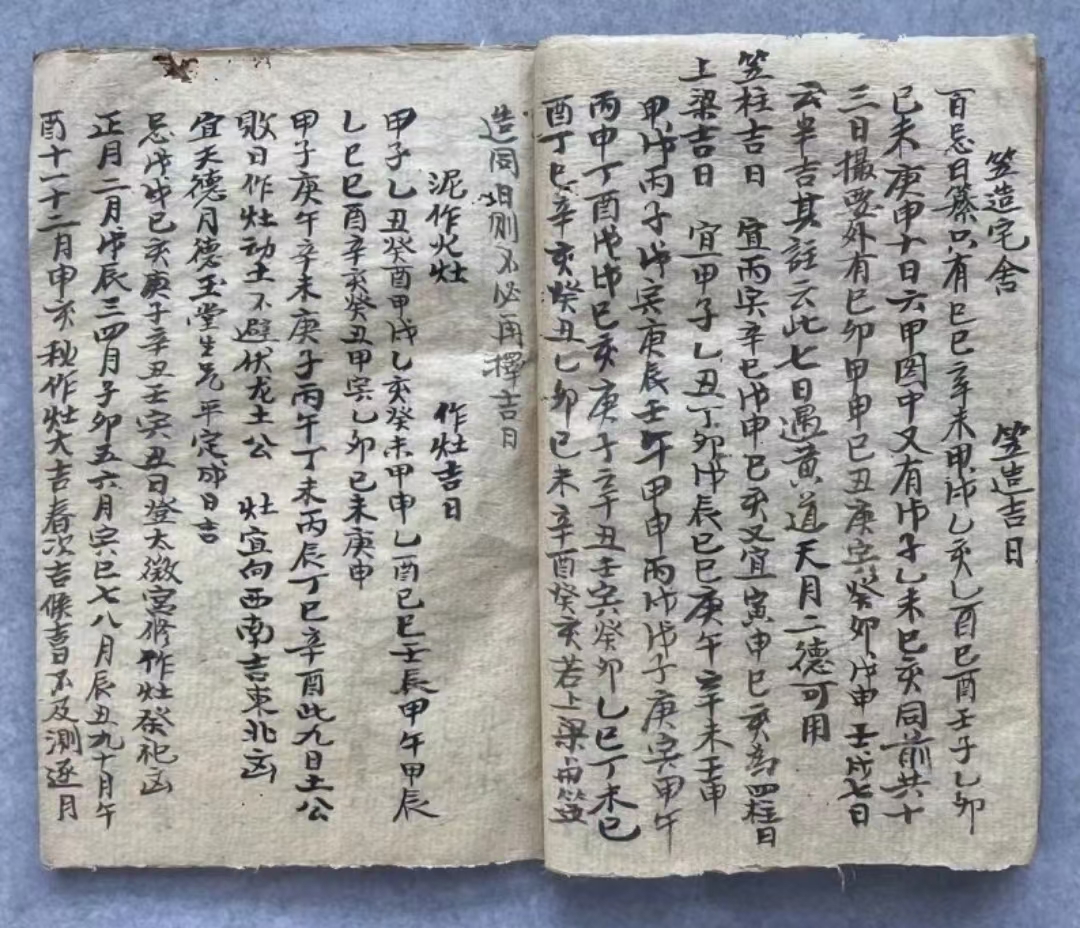 竖造宅舍 竖造吉日
百忌日纂只有己巳辛未甲戌乙亥乙酉己酉壬子乙卯
己未庚申十日六甲図中又有戊子乙未己亥同前共十
三日撮要外有己卯甲申己丑庚寅癸卯戊申壬戌七日
云半吉其註云此七日遇黄道天月二德可用
竖柱吉日 宜丙寅辛巳戊申己亥又宜寅申巳亥為四柱日
上梁吉日 宜甲子乙丑丁卯戊辰己巳庚午辛未壬申
甲戌丙子戊寅庚辰壬午甲申丙戌戊子庚寅甲午
丙申丁酉戊戌己亥庚子辛丑壬寅癸卯乙巳丁未己
酉丁巳辛亥癸丑乙卯己未辛酉癸亥若上梁与竖
造同日则不必再擇吉日
泥作火灶 作灶吉日
甲子乙丑癸酉甲戌乙亥癸未甲申乙酉己巳壬辰甲午甲辰
乙巳己酉辛亥癸丑甲寅乙卯己未庚申
甲子庚午辛未庚子丙午丁未丙辰丁巳辛酉此九日土公
败日作灶动土不避伏龙土公 灶宜向西南吉東北凶
宜天德月德玉堂生炁平定成日吉
忌戊戌己亥庚子辛丑壬寅丑日登太微宫修作灶祭祀凶
正月二月戊辰三四月子卯五六月寅巳七八月辰丑九十月午
酉十一十二月申亥秋作灶大吉春次吉候書不及測逐月